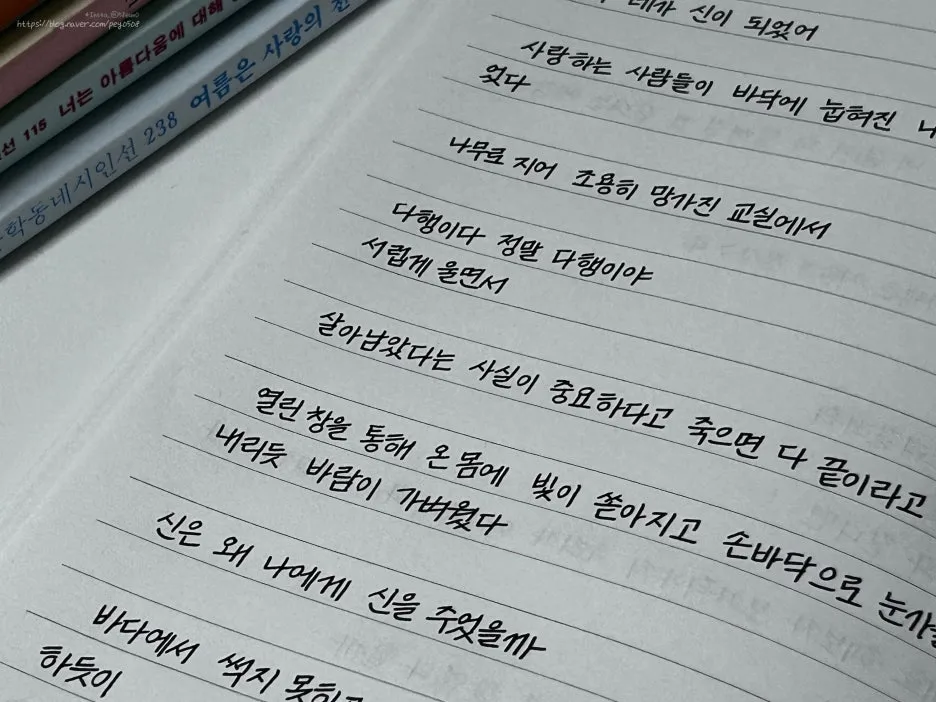 https://blog.naver.com/peyo508
너는 아름다움에 대해
115
여름은 사랑의 천
학동네시인선 238
네가 신이 되었어
사랑하는 사람들이 바닥에 눕혀진
었다
나무로 지어 조용히 망가진 교실에서
다행이다 정말 다행이야
서럽게 울면서
살아남았다는 사실이 중요하다고 죽으면 다 끝이라고
열린 창을 통해 온몸에 빛이 쏟아지고 손바닥으로 눈가를
내리듯 바람이 가벼웠다
신은 왜 나에게 신을 주었을까
바다에서 썩지 못하고
하듯이